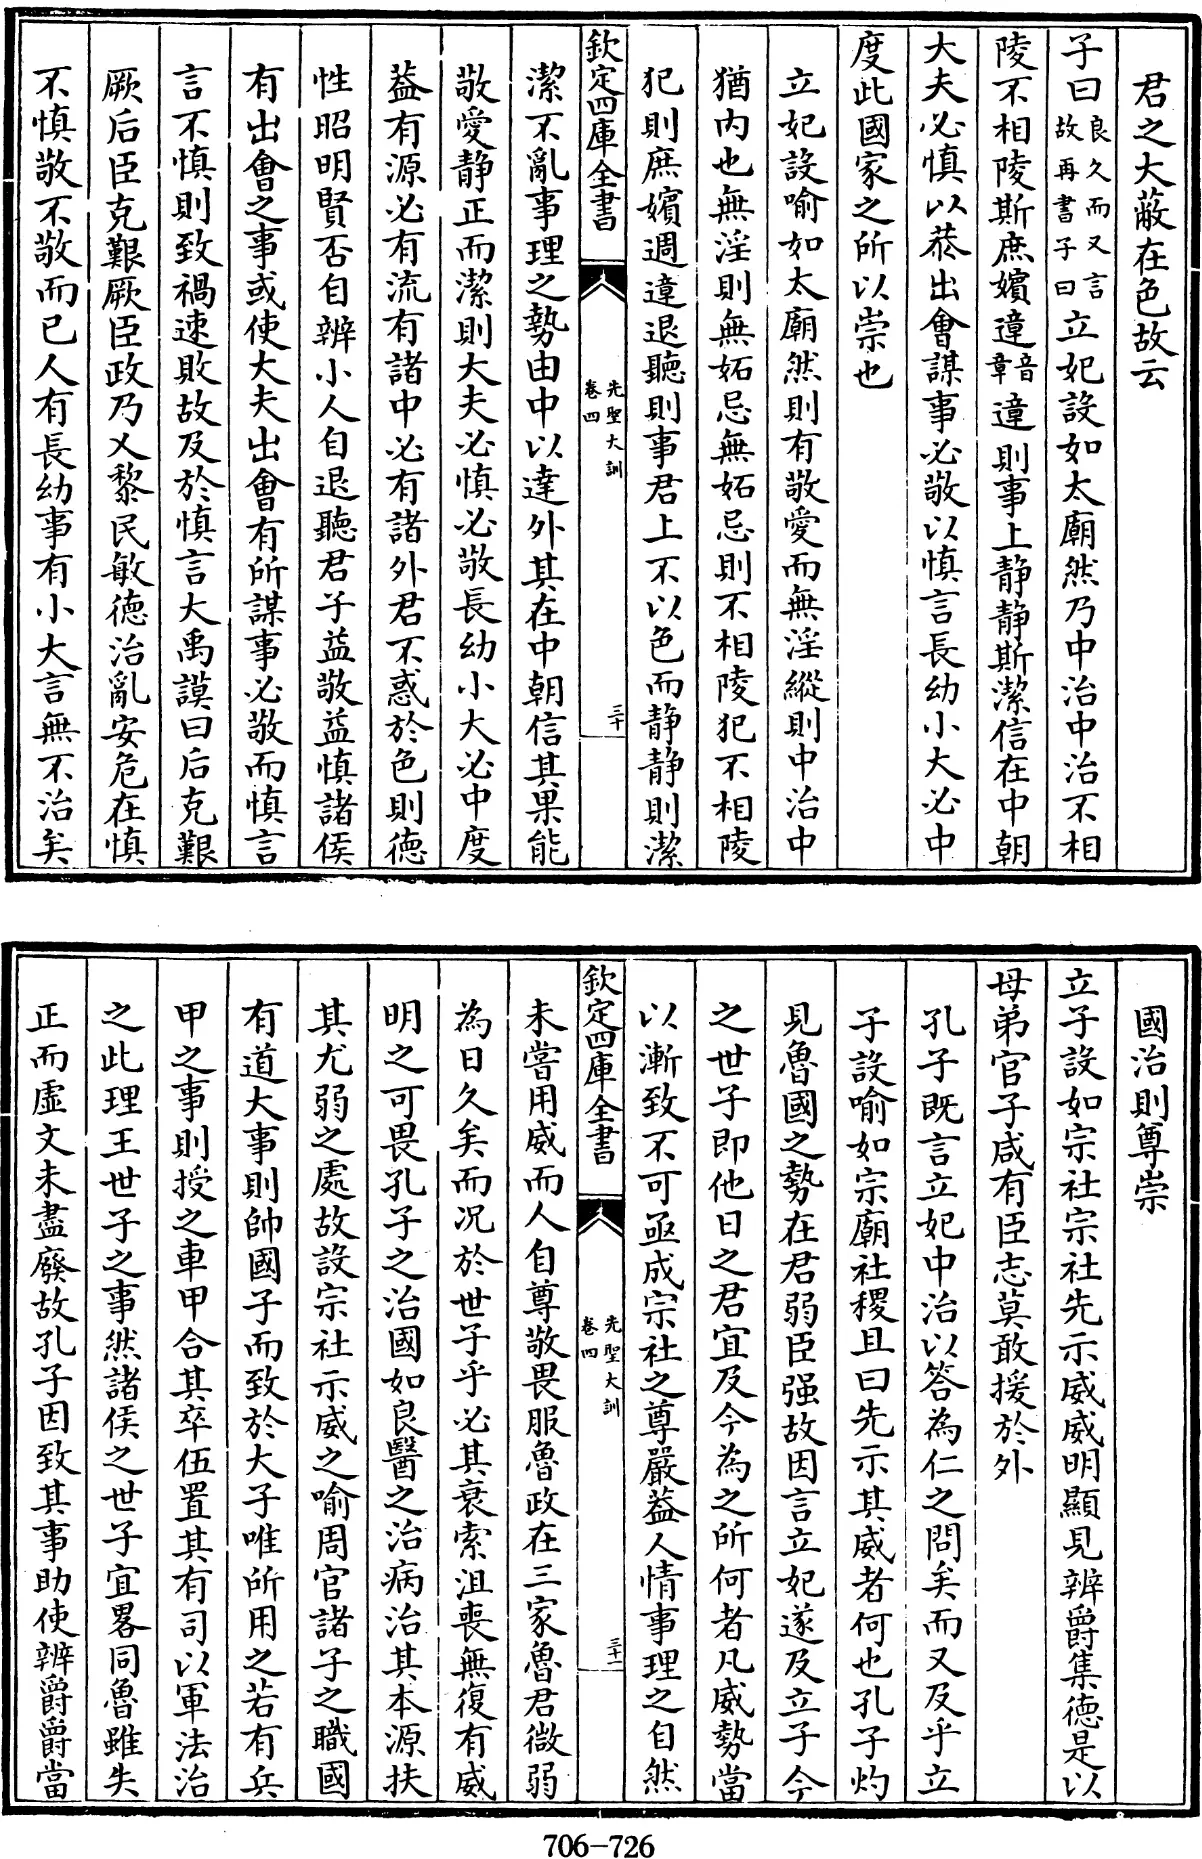 君之大蔽在色故云
子曰良久而又言故再書子曰立妃設如太廟然乃中治中治不相
陵不相陵斯庶嬪違音章違則事上静静斯潔信在中朝
大夫必慎以恭出會謀事必敬以慎言長幼小大必中
度此國家之所以崇也
立妃設喻如太廟然則有敬愛而無淫縱則中治中
猶内也無淫則無妬忌無妬忌則不相陵犯不相陵
犯則庶嬪週違退聽則事君上不以色而静静則潔
欽定四庫全書
先聖大訓
卷四
三十
潔不亂事理之勢由中以達外其在中朝信其果能
敬愛静正而潔則大夫必慎必敬長幼小大必中度
葢有源必有流有諸中必有諸外君不惑於色則德
性昭明賢否自辨小人自退聽君子益敬益慎諸侯
有出會之事或使大夫出會有所謀事必敬而慎言
言不慎則致禍速敗故及於慎言大禹謨曰后克艱
厥后臣克艱厥臣政乃乂黎民敏德治亂安危在慎
不慎敬不敬而已人有長幼事有小大言無不治矣
國治則尊崇
立子設如宗社宗社先示威威明顯見辨爵集德是以
母弟官子咸有臣志莫敢援於外
孔子既言立妃中治以答為仁之問矣而又及乎立
子設喻如宗廟社稷且曰先示其威者何也孔子灼
見魯國之勢在君弱臣强故因言立妃遂及立子今
之世子即他日之君宜及今為之所何者凡威勢當
以漸致不可亟成宗社之尊嚴葢人情事理之自然
欽定四庫全書
先聖大訓
卷四
三十一
未嘗用威而人自尊敬畏服魯政在三家魯君微弱
為日久矣而况於世子乎必其衰索沮喪無復有威
明之可畏孔子之治國如良醫之治病治其本源扶
其尤弱之處故設宗社示威之喻周官諸子之職國
有道大事則帥國子而致於大子唯所用之若有兵
甲之事則授之車甲合其卒伍置其有司以軍法治
之此理王世子之事然諸侯之世子宜畧同魯雖失
正而虚文未盡廢故孔子因致其事助使辨爵爵當
706-726